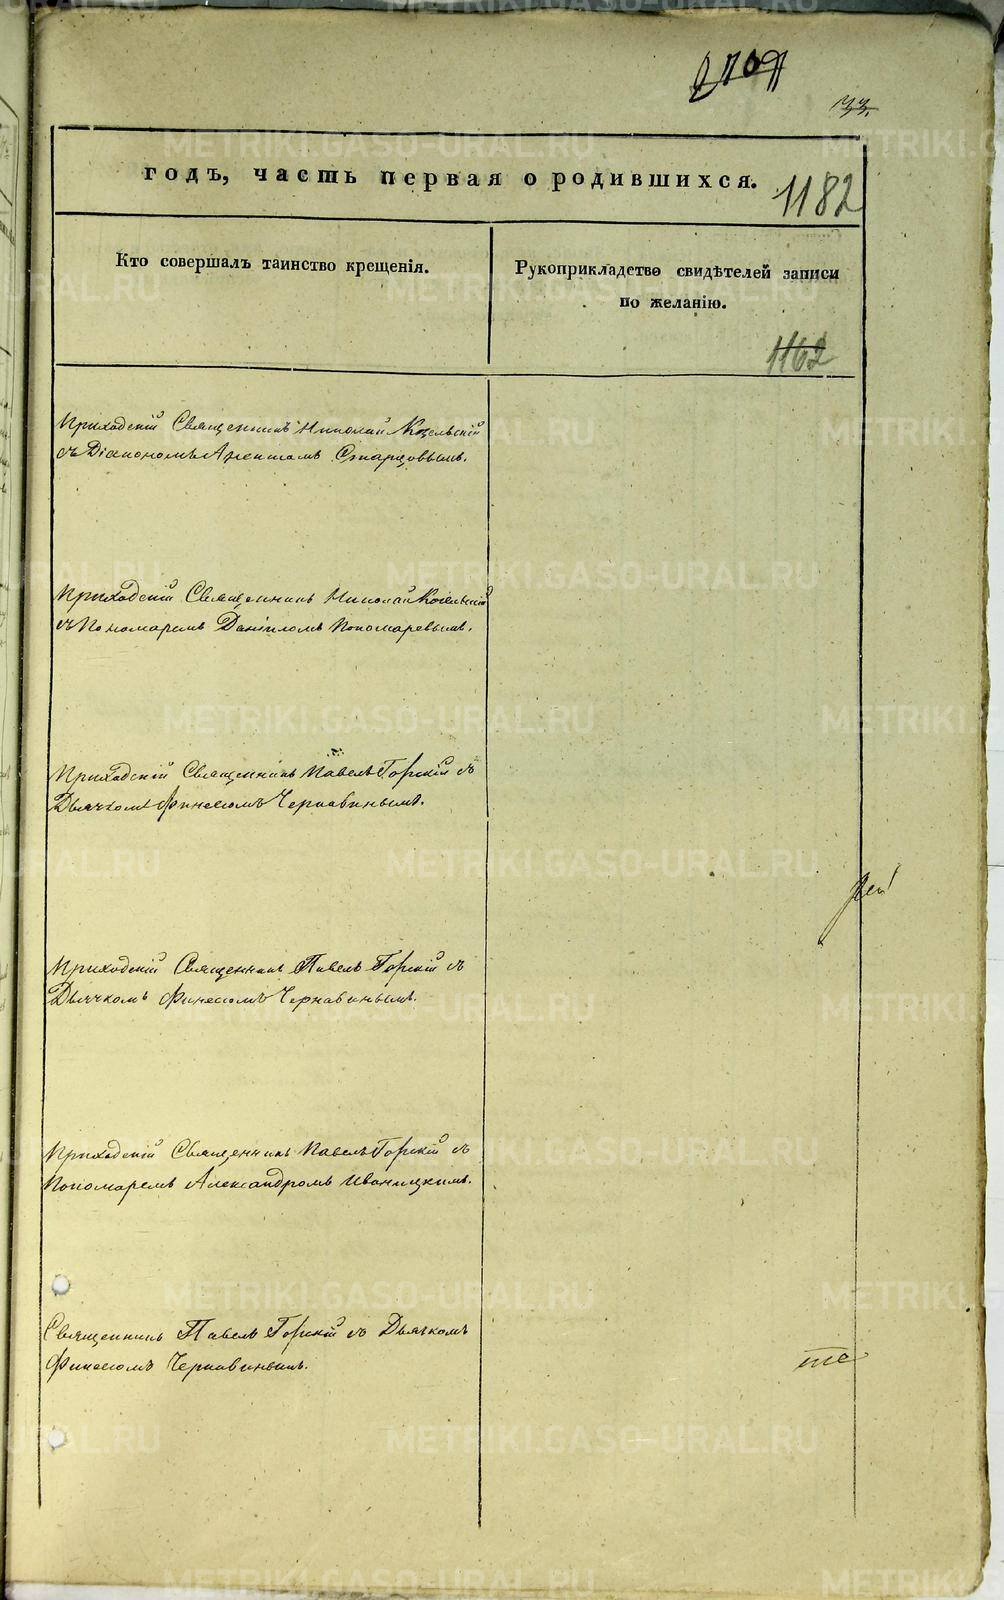 33.
годъ, часть первая о родившихся.
1182
Кто совершалъ таинство крещенія.
Рукоприкладство свидѣтелей записи
по желанію.
1162
Приходскій Священникъ Николай
съ Діакономъ Старцовымъ.
Приходскій Священникъ Николай
съ Пономаремъ Даніиломъ Пономаревымъ.
Приходскій Священникъ Павелъ Горскій съ
Дьячкомъ Финеесомъ Чернавинымъ.
Приходскій Священникъ Павелъ Горскій съ
Дьячкомъ Финеесомъ Чернавинымъ.
Приходскій Священникъ Павелъ Горскій съ
Пономаремъ Александромъ Иваницкимъ.
Священникъ Павелъ Горскій съ Дьячкомъ
Финеесомъ Чернавинымъ.
METRIKI.GASO-URAL.RU